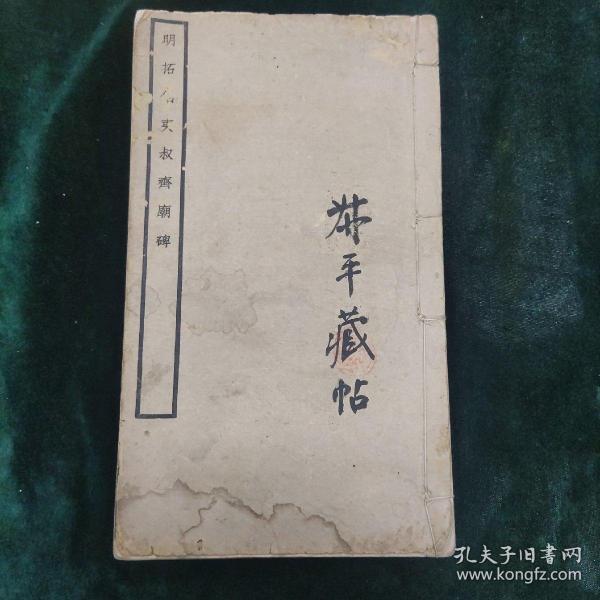 明拓夷叔齊廟碑
平藏帖
孔夫子旧書网
www.kongfz.com